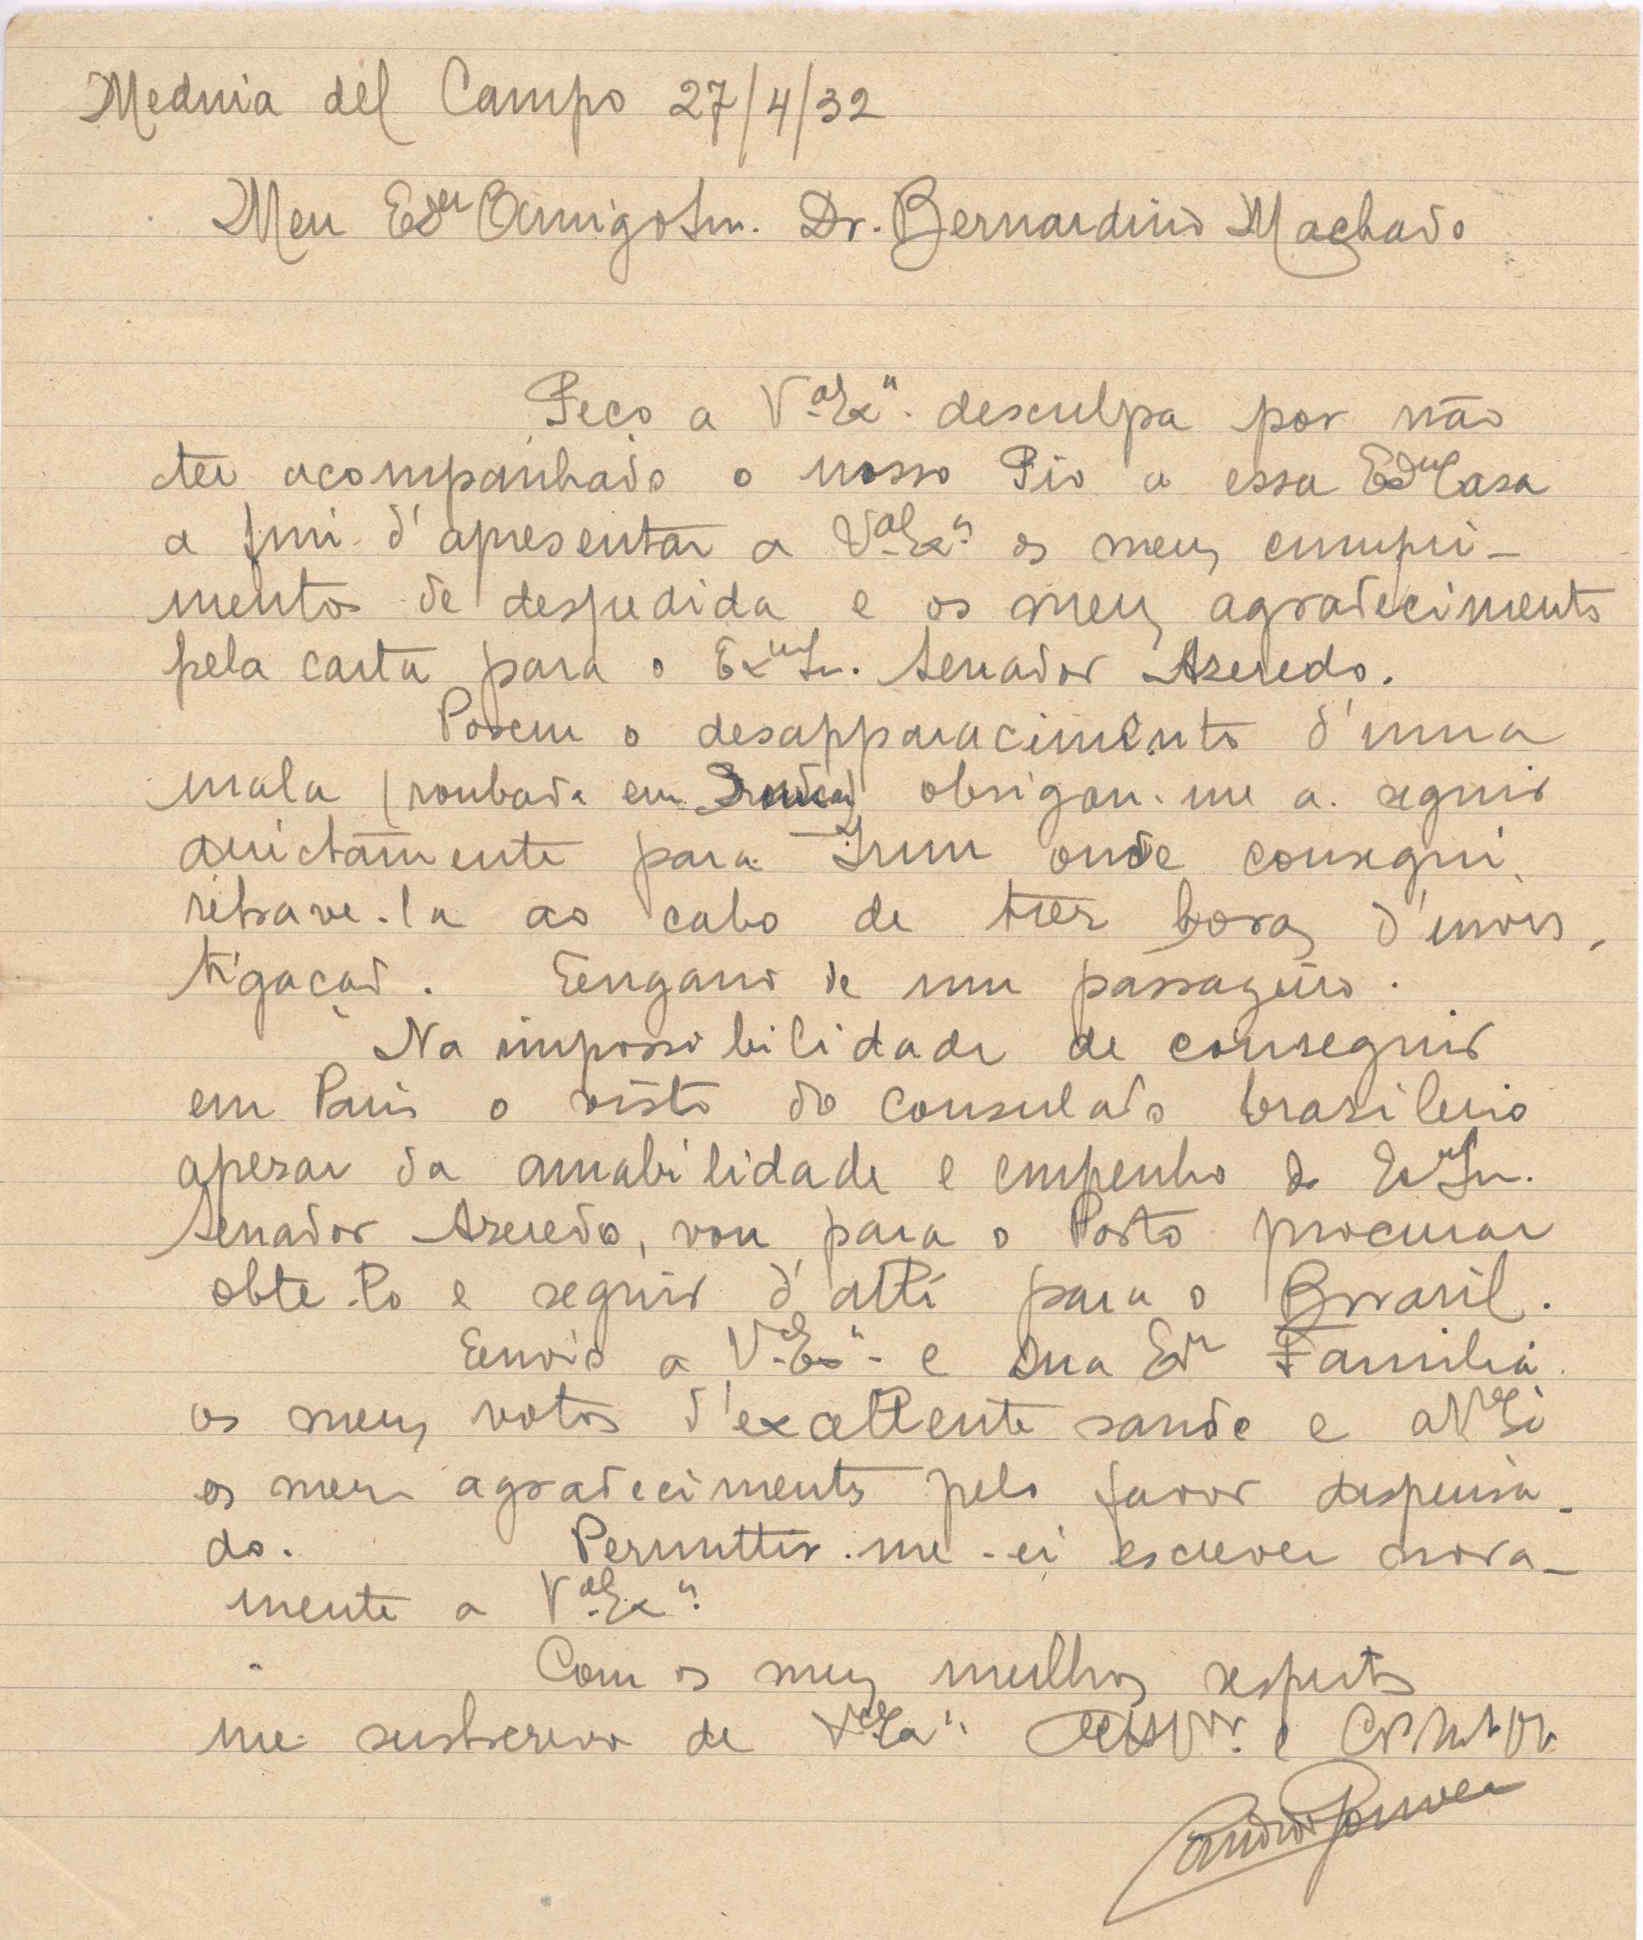 Medina del Campo 27/4/32
Meu Exmo Amigo Snr. Dr. Bernardino Machado
Peço a V.ª Ex.ª desculpa por não
ter acompanhado o nosso Pio a essa Exma Casa
a fim d'apresentar a V.ª Ex.ª os meus cumpri-
mentos de despedida e os meus agradecimentos
pela carta para o Exmo Sr. Senador Azeredo.
Porem o desapparacimento d'uma
mala (roubada em obrigou-me a seguir
directamente para Irun onde consegui
rehave-la ao cabo de trez horas d'inves-
tigação. Engano de um passageiro.
Na impossibilidade de conseguir
em Paris o visto do consulado brasileiro
apesar da amabilidade e empenho do Exmo Sr.
Senador Azeredo, vou para o Porto procurar
obte-lo e seguir d'alli para o Brazil.
Envio a V. Ex.ª e sua Exma Familia
os meus votos d'excellente saude e a V. Ex.ª
os meus agradecimentos pelo favor dispensa-
do. Permittir-me-ei escrever nova-
mente a V.ª Ex.ª
Com os meus melhores respeitos
me subscrevo de V. Ex.ª e